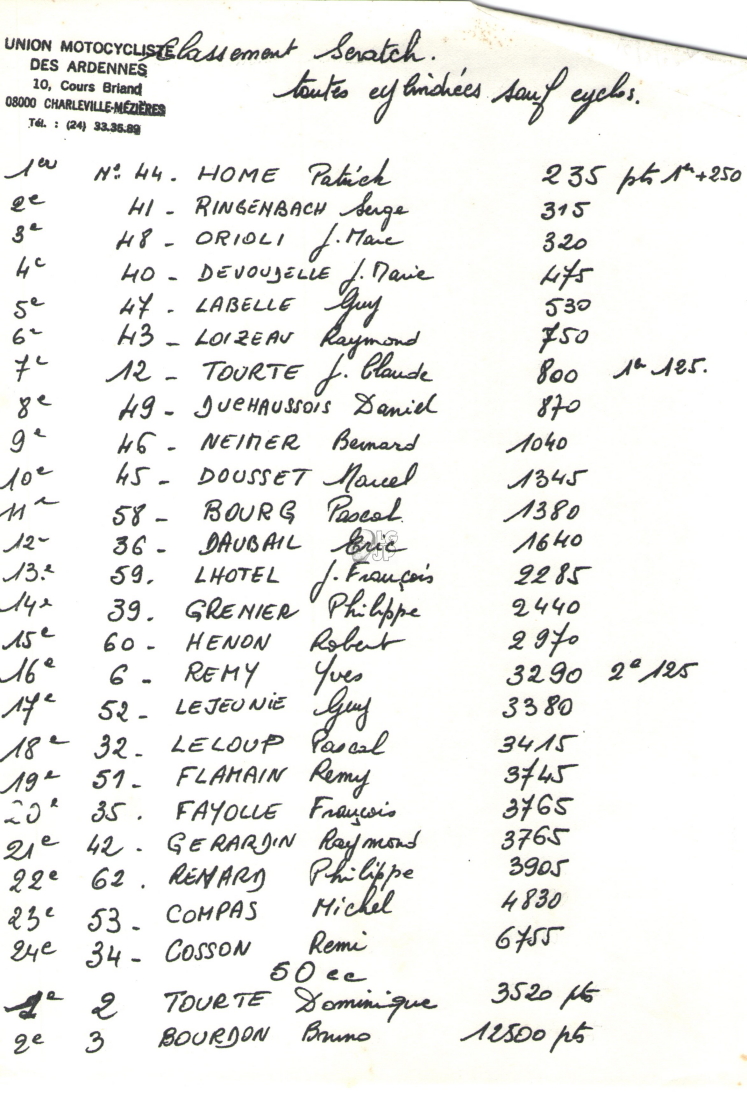 UNION MOTOCYCLISTE
DES ARDENNES
10, Cours Briand
08000 CHARLEVILLE-MÉZIÈRES
Tél. : (24) 33.35.89
Classement Scratch.
toutes cylindrées sauf cyclos.
1er N° 44. HOME Patrick 235 pts 1er +250
2e 41 - RINGENBACH Serge 315
3e 48 - ORIOLI J. Marc 320
4e 40 - DEVOUDELLE J. Marie 475
5e 47 - LABELLE Guy 530
6e 43 - LOIZEAU Raymond 750
7e 12 - TOURTE J. Claude 800 1er 125.
8e 49 - DUCHAUSSOIS Daniel 870
9e 46 - NEIMER Bernard 1040
10e 45 - DOUSSET Marcel 1345
11e 58 - BOURG Pascal 1380
12e 36 - DAUBAIL Eric 1640
13e 59. LHOTEL J. François 2285
14e 39. GRENIER Philippe 2440
15e 60 - HENON Robert 2970
16e 6 - REMY Yves 3290 2e 125
17e 52 - LEJEUNIE Guy 3380
18e 32 - LELOUP Pascal 3415
19e 51 - FLAMAIN Remy 3745
20e 35. FAYOLLE François 3765
21e 42 - GERARDIN Raymond 3765
22e 62. RENARD Philippe 3905
23e 53 - COMPAS Michel 4830
24e 34 - COSSON Remi 6755
50 cc
1e 2 TOURTE Dominique 3520 pts
2e 3 BOURDON Bruno 12500 pts